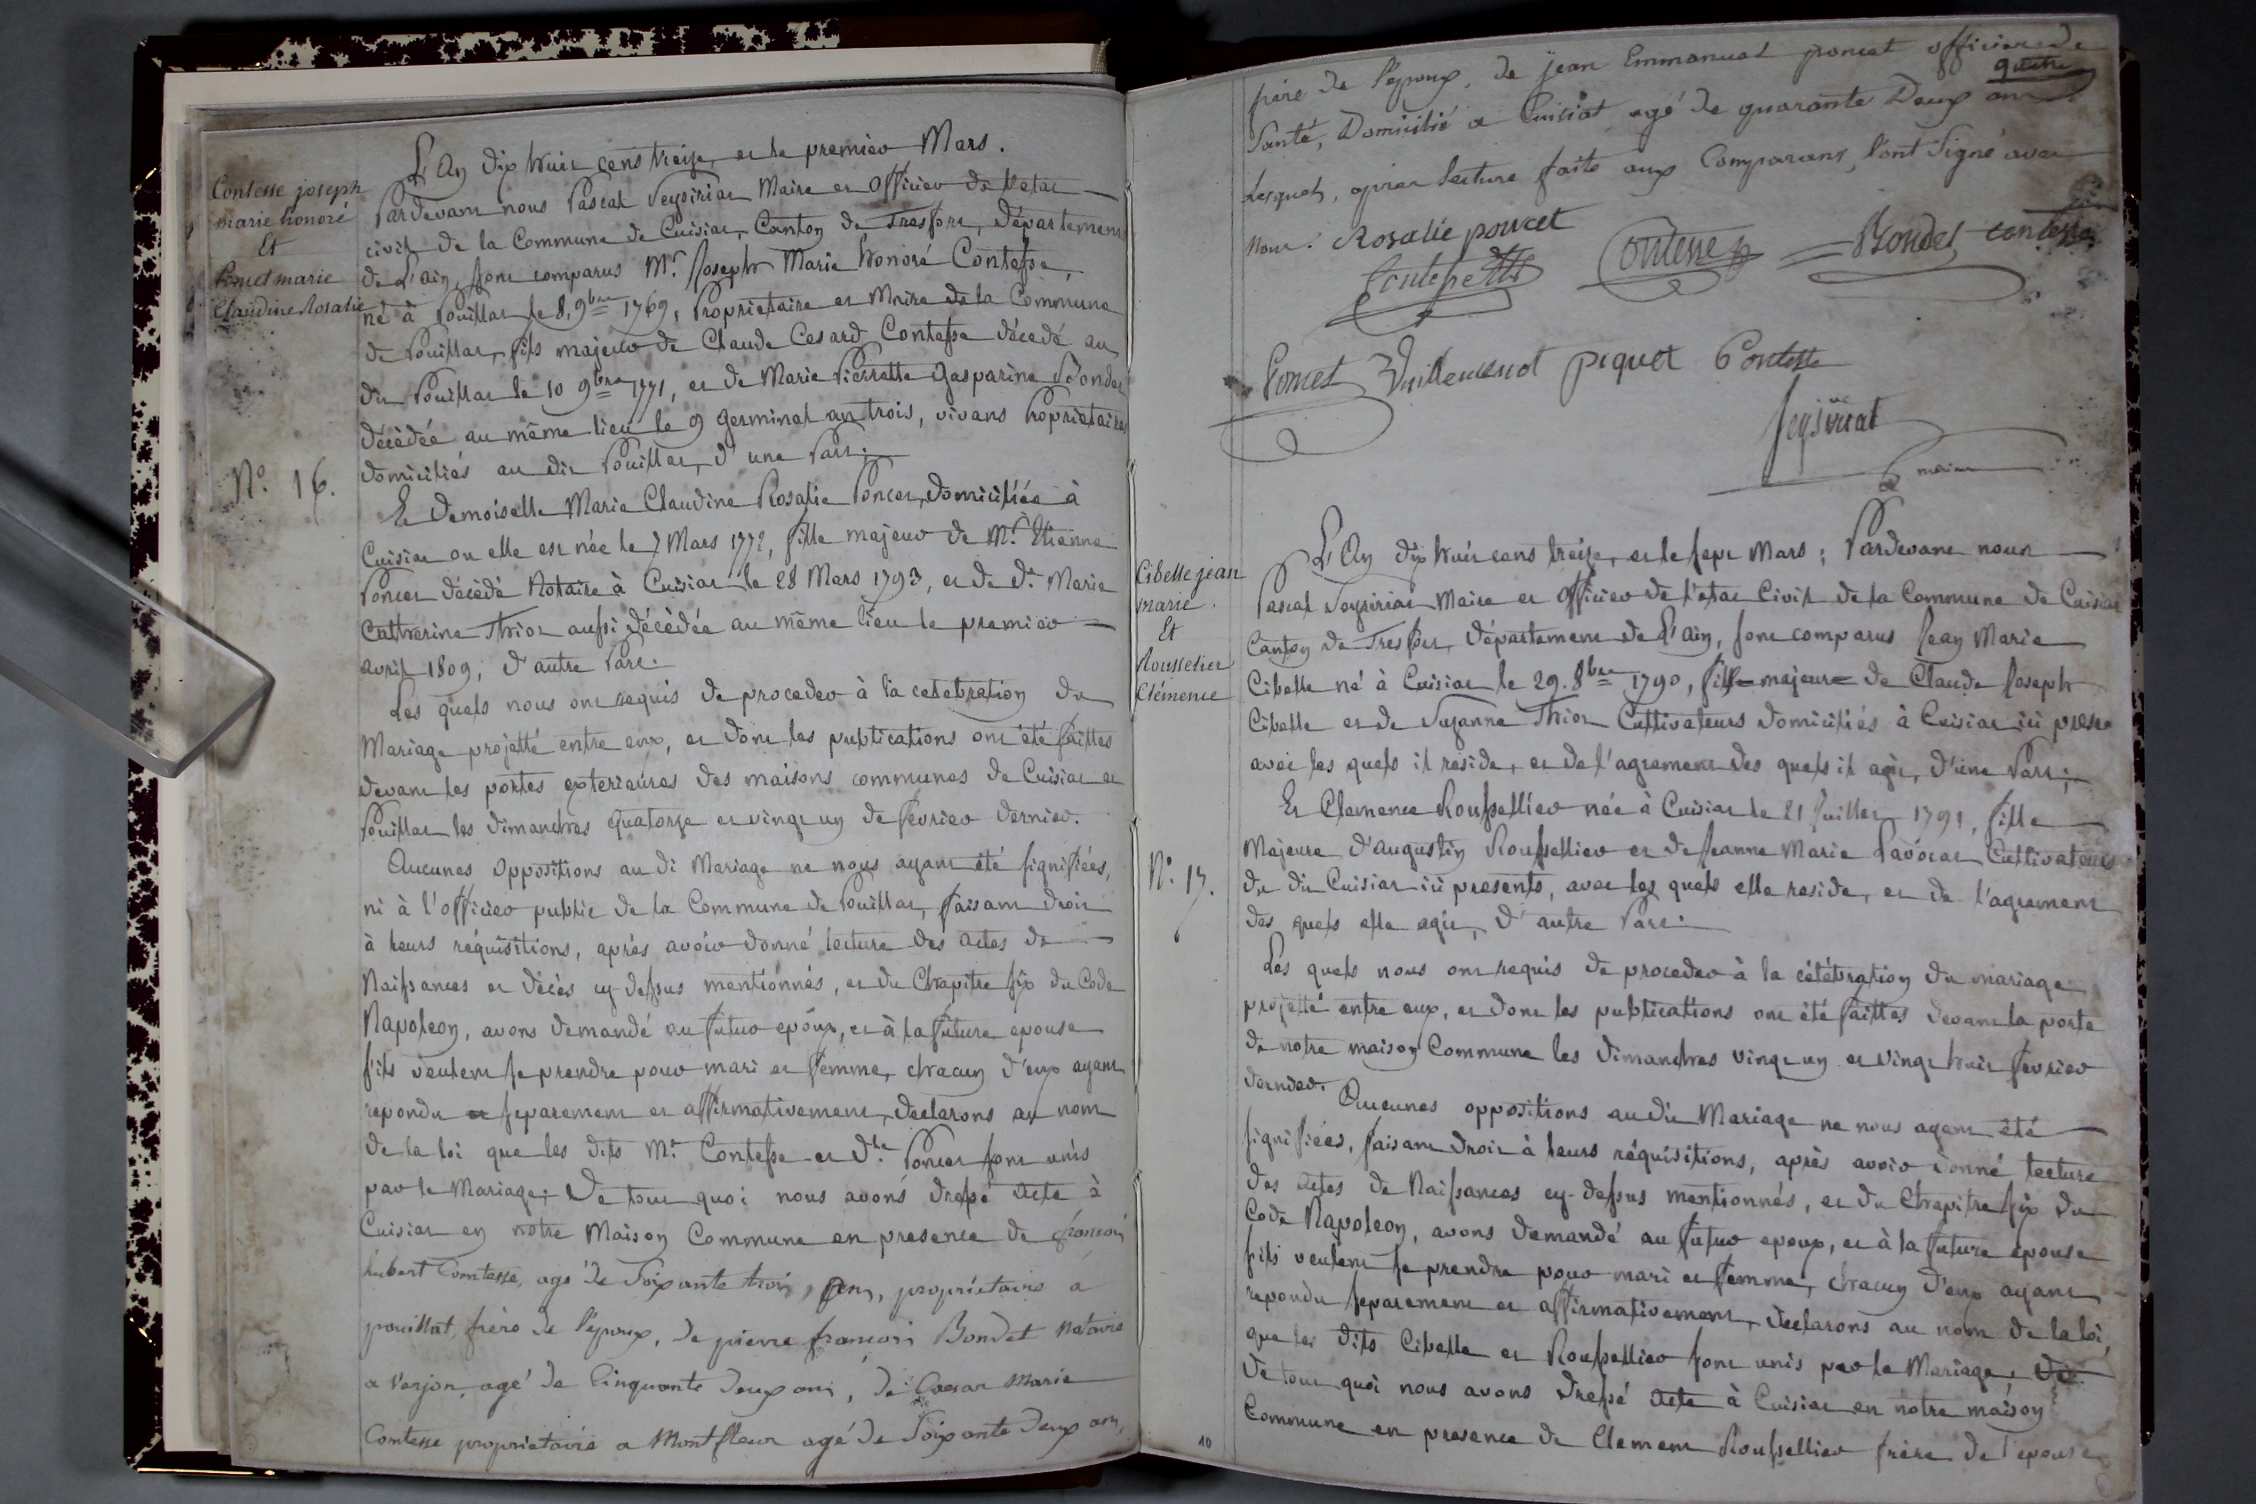 Contesse joseph
marie honoré
Et
Poncet marie
Claudine Rosalie
N.o 16.
L'An dix huit cens treize, et le premier Mars.
Pardevant nous Pascal Seysiriat Maire et Officier de l'etat
civil de la Commune de Cuisiat, Canton de Tresfort, Département
de L'ain, sont comparus M.r Joseph Marie honoré Contesse,
né à Pouillat le 8, 9bre 1769, Propriétaire et Maire de la Commune
de Pouillat, fils majeur de Claude Cesard Contesse décedé au
dit Pouillat le 10 9bre 1771, et de Marie Pierrette Gasparine Bondet
décèdée au même lieu le 9 germinal an trois, vivans Propriétaires
domiciliés au dit Pouillat, d'une Part;
Et Demoiselle Marie Claudine Rosalie Poncet, domiciliée à
Cuisiat ou elle est née le 7 Mars 1772, fille majeur de M.r Etienne
Poncet décèdé Notaire à Cuisiat le 28 Mars 1793, et de d.e Marie
Catherine Thiot aussi décèdée au même lieu le premier
avril 1809, d'autre Part.
Les quels nous ont requis de proceder à la celebration du
Mariage projetté entre eux, et dont les publications ont été faittes
devant les portes exterieures des maisons communes de Cuisiat et
Pouillat les dimanches quatorze et vingt un de fevrier dernier.
Aucunes oppositions au di Mariage ne nous ayant été signifiées,
ni à l'officier public de la Commune de Pouillat, faisant droit
à leurs réquisitions, après avoir donné lecture des actes de
Naissances et décès cy-dessus mentionnés, et du Chapitre six du Code
Napoleon, avons demandé au futur epoux, et à la future epouse
s'ils veulent se prendre pour mari et femme, chacun d'eux ayant
repondu separement et affirmativement, declarons au nom
de la loi que les dits M.r Contesse et d.lle Poncet sont unis
par le Mariage; De tout quoi nous avons dressé acte à
Cuisiat en notre Maison Commune en presence de francois
hubert Contesse, agé de Soixante trois, ans, propriétaire a
pouillat, frère de l'époux, de pierre francois Bondet Notaire
a Verjon, agé de Cinquante deux ans, de Cæsar Marie
Contesse propriétaire a Montfleur agé de Soixante deux ans,
frère de l'époux, de jean Emmanuel poncet officier de
Santé, Domicilié a Cuisiat agé de quarante Deux ans
Lesquels, après lecture faite aux Comparans, l'ont Signé avec
Nous. Rosalie poncet
Contesse Contesse Bondet contesse
Poncet Vuillemenot piquet Contesse
Seysiriat
maire
Cibelle jean
marie
Et
Rousselier
Clémence
N.o 17.
L'An dix huit cens treize, et le sept Mars; Pardevant nous
Pascal Seysiriat Maire et Officier de l'etat Civil de la Commune de Cuisiat
Canton de Tresfort, département de L'ain, sont comparus Jean Marie
Cibelle né à Cuisiat le 29. 8bre 1790, fils majeur de Claude Joseph
Cibelle et de Suzanne Thiot Cultivateurs domiciliés à Cuisiat ici presens
avec les quels il reside, et de l'agrement des quels il agit, d'une Part;
Et Clemence Roussellier née à Cuisiat le 21 Juillet 1791, fille
Majeure d'Augustin Roussellier et de Jeanne Marie Pavocat Cultivateurs
du dit Cuisiat ici presents, avec les quels elle reside, et de l'agrement
des quels elle agit, d'autre Part.
Les quels nous ont requis de proceder à la célébration du mariage
projetté entre eux, et dont les publications ont été faittes devant la porte
de notre maison Commune les dimanches vingt un et vingt huit fevrier
dernier. Aucunes oppositions au dit Mariage ne nous ayant été
signifiées, faisant droit à leurs réquisitions, après avoir donné lecture
des actes de Naissances cy-dessus mentionnés, et du Chapitre six du
Code Napoleon, avons demandé au futur epoux, et à la future epouse
s'ils veulent se prendre pour mari et femme, chacun d'eux ayant
repondu separement et affirmativement, declarons au nom de la loi,
que les dits Cibelle et Roussellier sont unis par le Mariage,
De tout quoi nous avons dressé acte à Cuisiat en notre maison
Commune en presence de Clement Roussellier frère de l'epouse
10